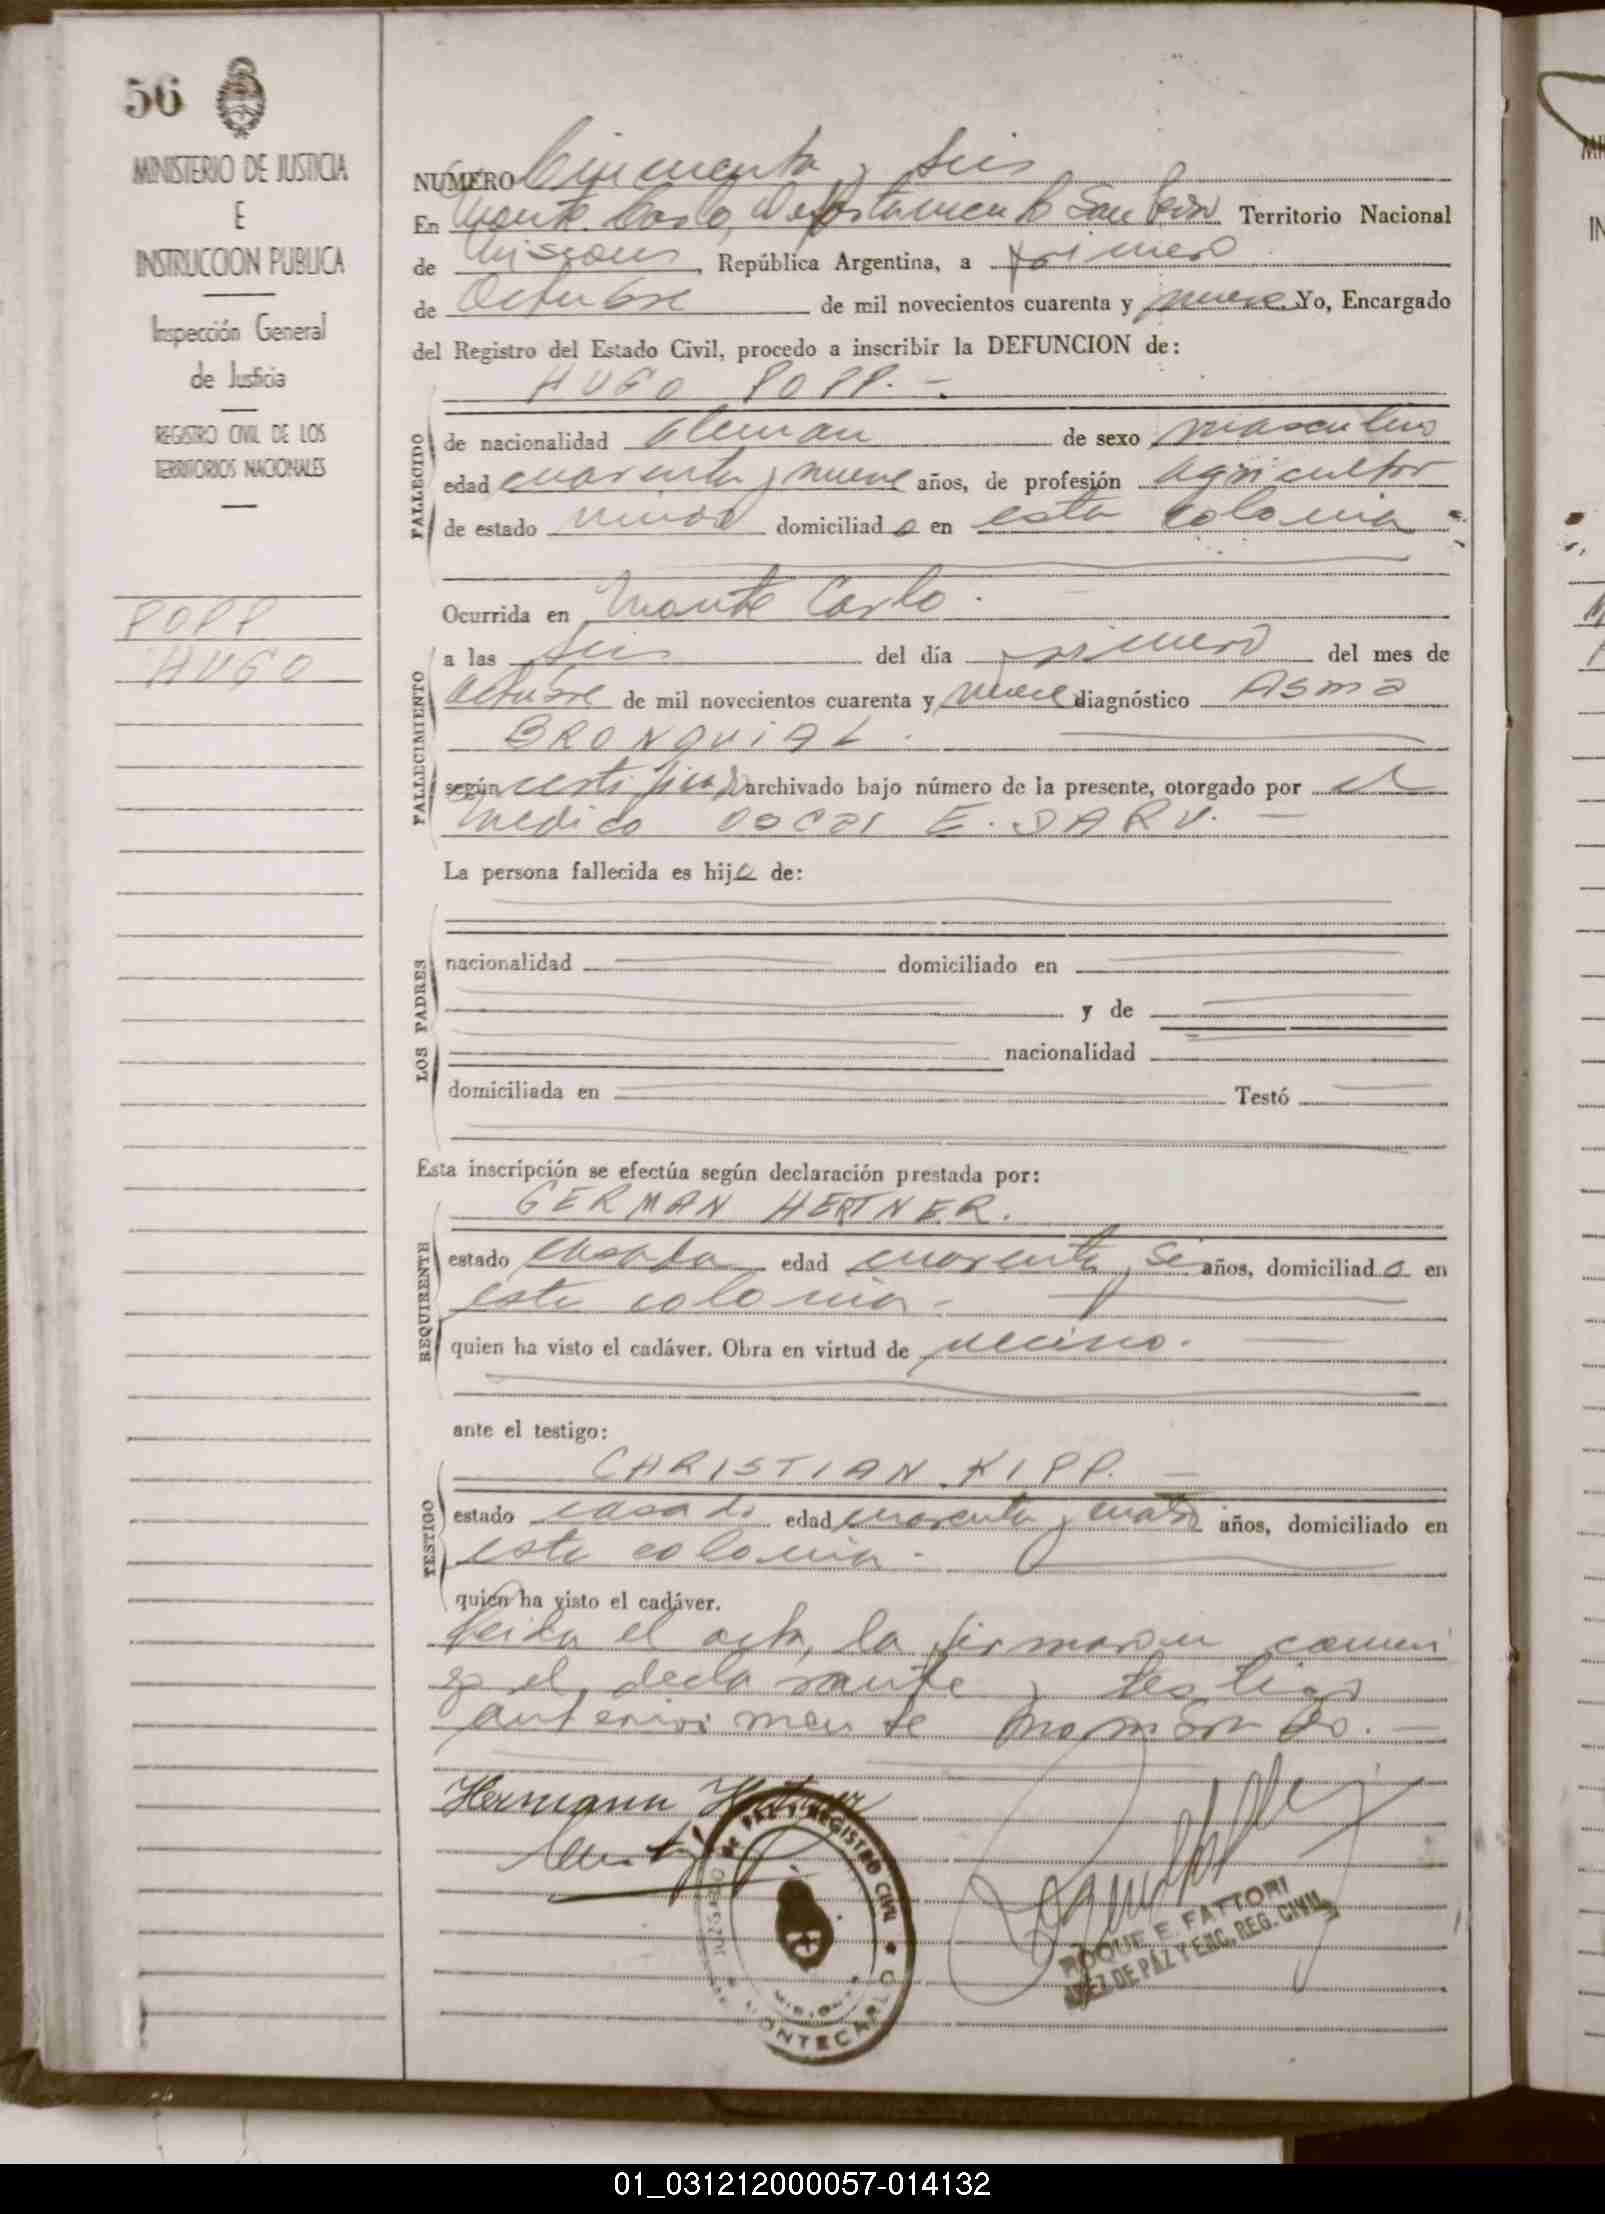 56
MINISTERIO DE JUSTICIA
E
INSTRUCCION PUBLICA
Inspección General
de Justicia
REGISTRO CIVIL DE LOS
TERRITORIOS NACIONALES
POPP
HUGO
NUMERO Cincuenta y seis
En Monte Carlo, Departamento San Territorio Nacional
de Misiones, República Argentina, a primero
de Octubre de mil novecientos cuarenta y nueve Yo, Encargado
del Registro del Estado Civil, procedo a inscribir la DEFUNCION de:
HUGO POPP.-
FALLECIDO
de nacionalidad aleman de sexo masculino
edad cuarenta y nueve años, de profesión agricultor
de estado domiciliado en esta colonia
FALLECIMIENTO
Ocurrida en Monte Carlo.
a las seis del día primero del mes de
octubre de mil novecientos cuarenta y nueve diagnóstico Asma
BRONQUIAL.
según certificado archivado bajo número de la presente, otorgado por el
medico oscar E. DARU.-
La persona fallecida es hijo de:
LOS PADRES
nacionalidad domiciliado en
y de
nacionalidad
domiciliada en Testó
Esta inscripción se efectúa según declaración prestada por:
GERMAN HERTNER.
REQUIRENTE
estado casado edad cuarenta y seis años, domiciliado en
esta colonia.-
quien ha visto el cadáver. Obra en virtud de vecino.
ante el testigo:
CHRISTIAN KIPP.-
TESTIGO
estado casado edad cuarenta y cuatro años, domiciliado en
esta colonia.-
quien ha visto el cadáver.
Leida el acta, la firmaron conmi
go el declarante y testigo
anteriormente nombrado.-
Hermann Hertner
DE PAZ Y REGISTRO CIVIL
JUZGADO
MISIONES
MONTECARLO
ROQUE E. FATTORI
JUEZ DE PAZ Y ENC. REG. CIVIL
01_031212000057-014132